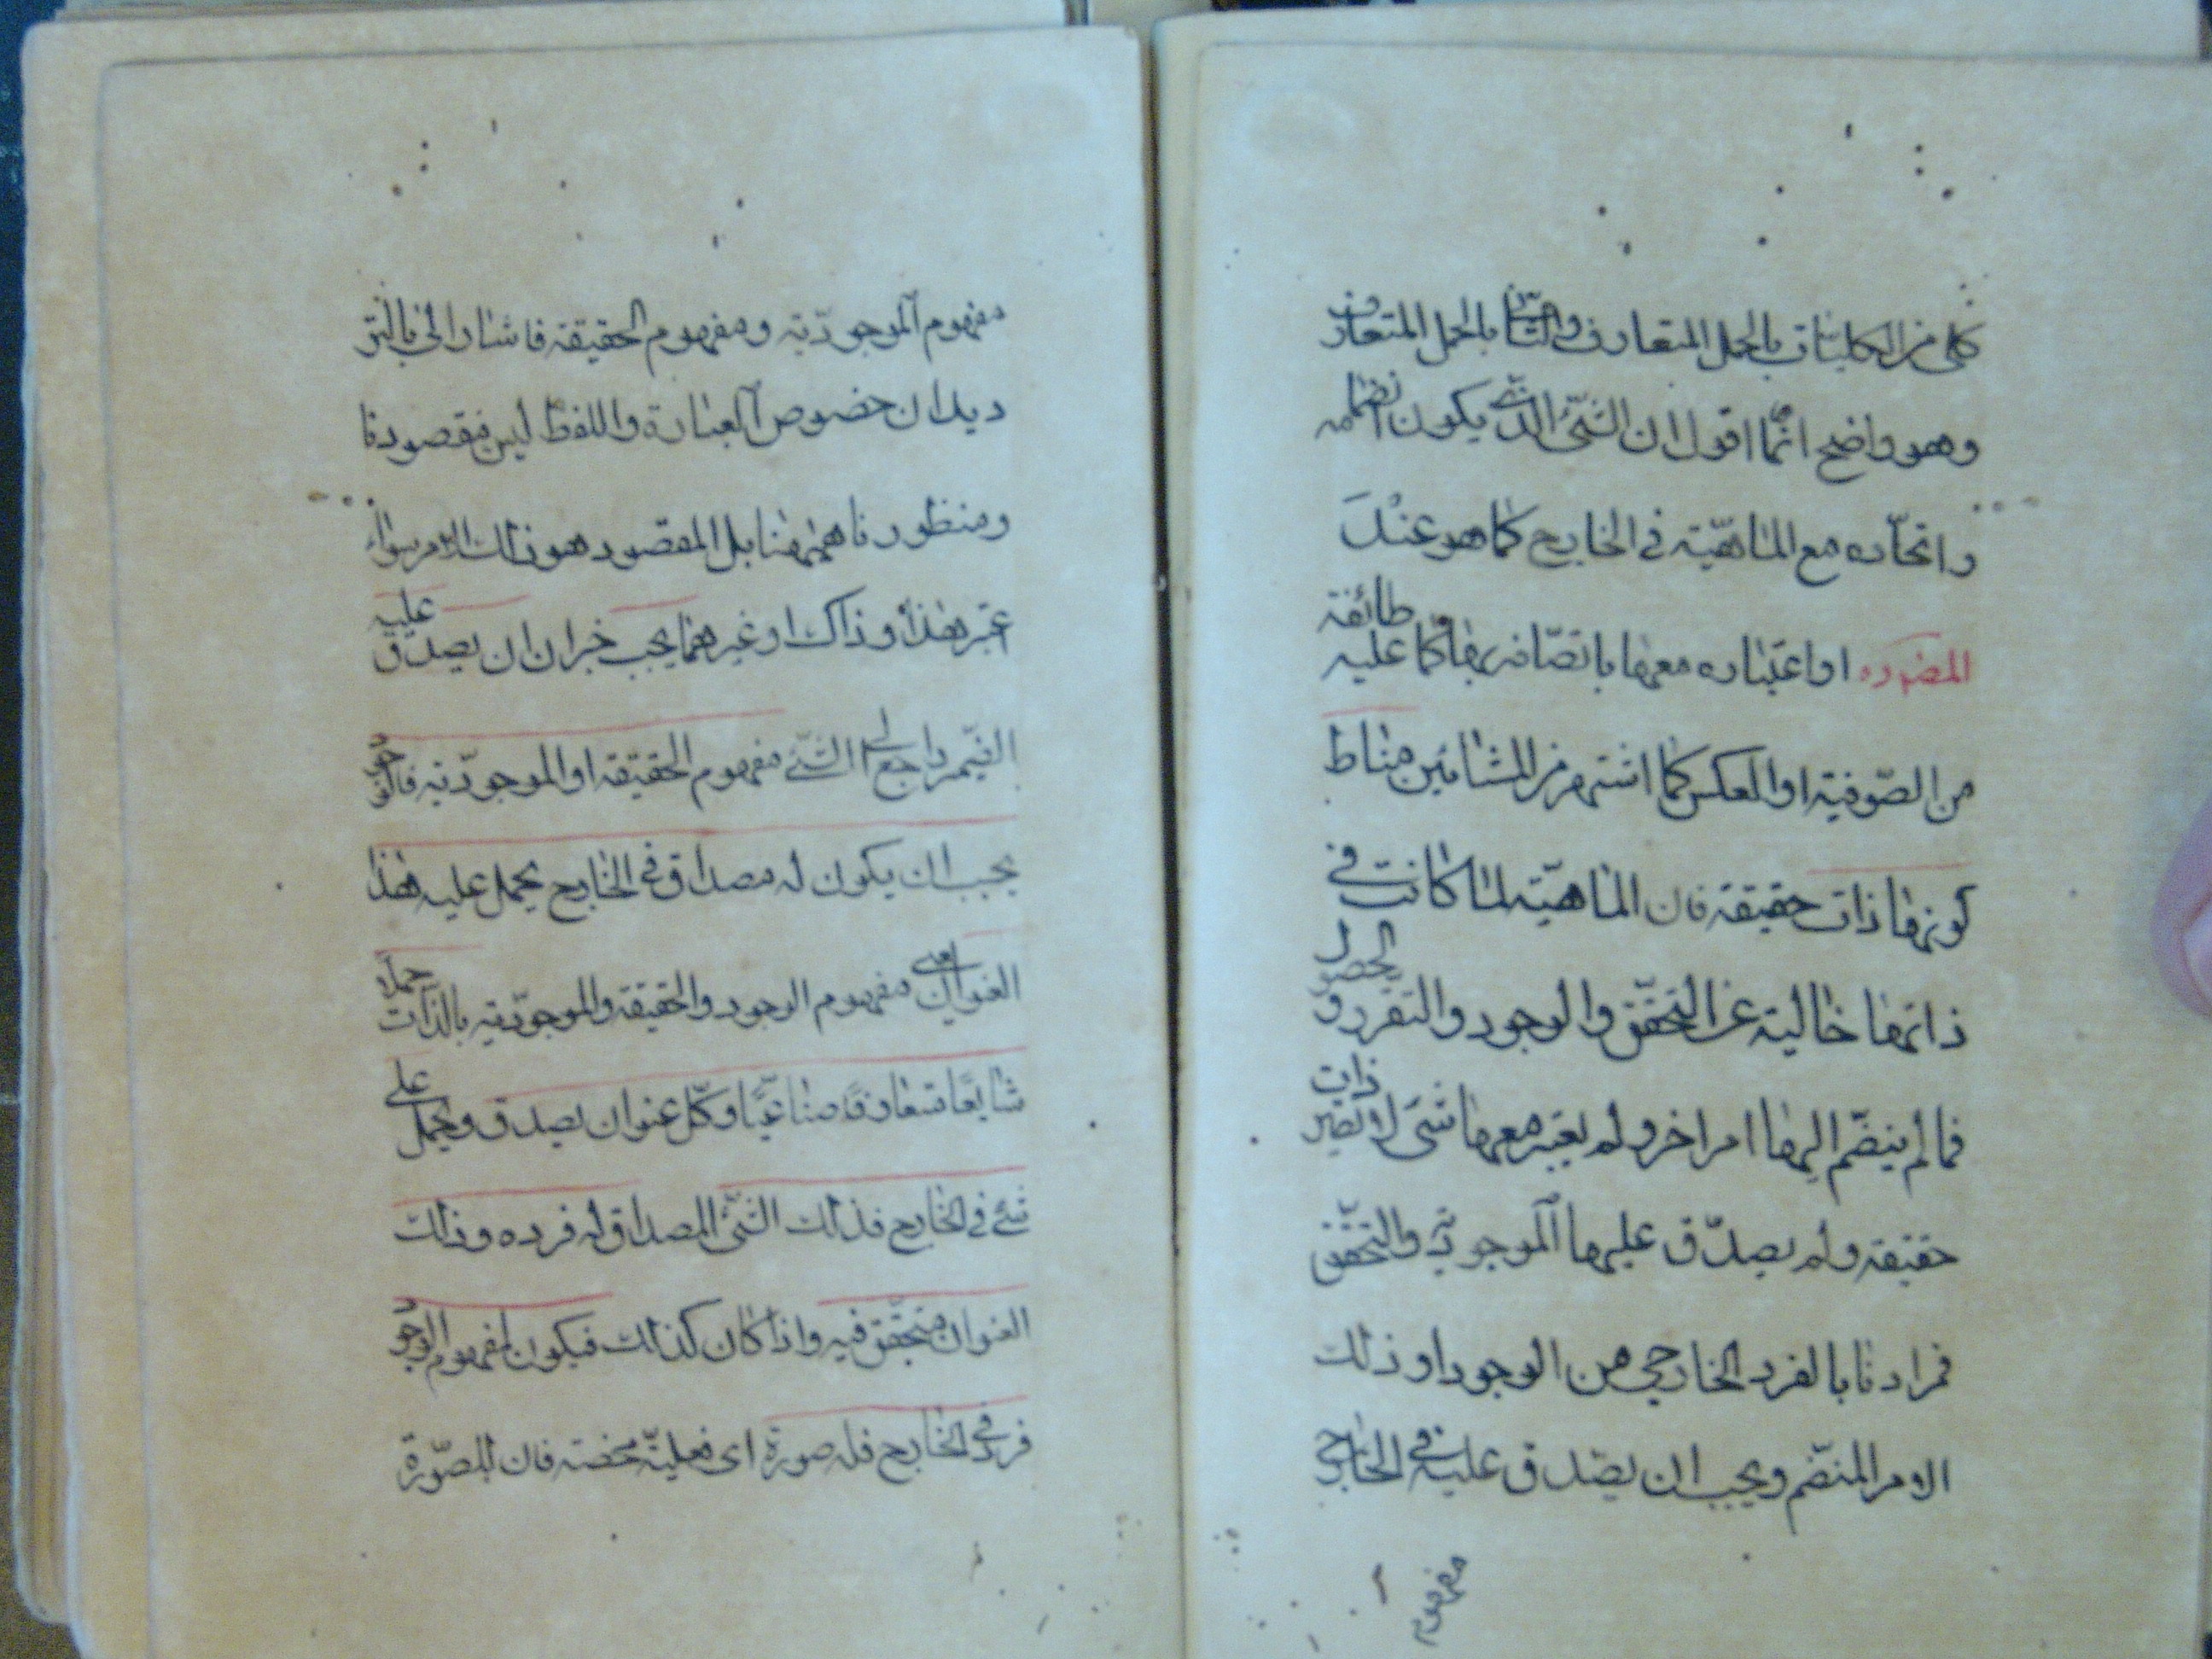 كلى من الكليات بالحمل المتعارف والشايع بالحمل المتعارف
وهو واضح انما اقول ان الشئ الذى يكون انضمامه
واتحاده مع الماهية فى الخارج كما هو عند
المضرده او اعتباره معها باتصافه بها كما عليه طائفة
من الصوفية او العكس كما اشتهر من المشائين مناط
كونها ذات حقيقة فان الماهية لما كانت فى
ذاتها خالية عن التحقق والوجود والتقرر والحصول
فما لم ينضم اليها امر اخر ولم يعتبر معها شئ لا تصير ذات
حقيقة ولم يصدق عليها الموجودية والتحقق
فمرادنا بالفرد الخارجى من الوجود او ذلك
الامر المنضم ويجب ان يصدق عليه فى الخارج
مفهوم
مفهوم الموجودية ومفهوم الحقيقة فاشار الى بالتر
ديد ان خصوص العبارة واللفظ ليس مقصودنا
ومنظورنا هيهنا بل المقصود هو ذلك الامر سواء
عبر بهذا او ذاك او غيرهما يجب خبر ان ان يصدق عليه
الضمير راجع الى الشئ مفهوم الحقيقة او الموجودية فالوجود
يجب ان يكون له مصداق فى الخارج يحمل عليه هذا
العنوان اعنى مفهوم الوجود والحقيقة والموجودية بالذات حملا
شايعا متعارفا صناعيا وكل عنوان يصدق ويحمل على
شئ فى الخارج فذلك الشئ المصداق له فرده وذلك
العنوان متحقق فيه واذا كان كذلك فيكون لمفهوم الوجود
فرد فى الخارج فله صورة اى فعلية محضة فان للصورة